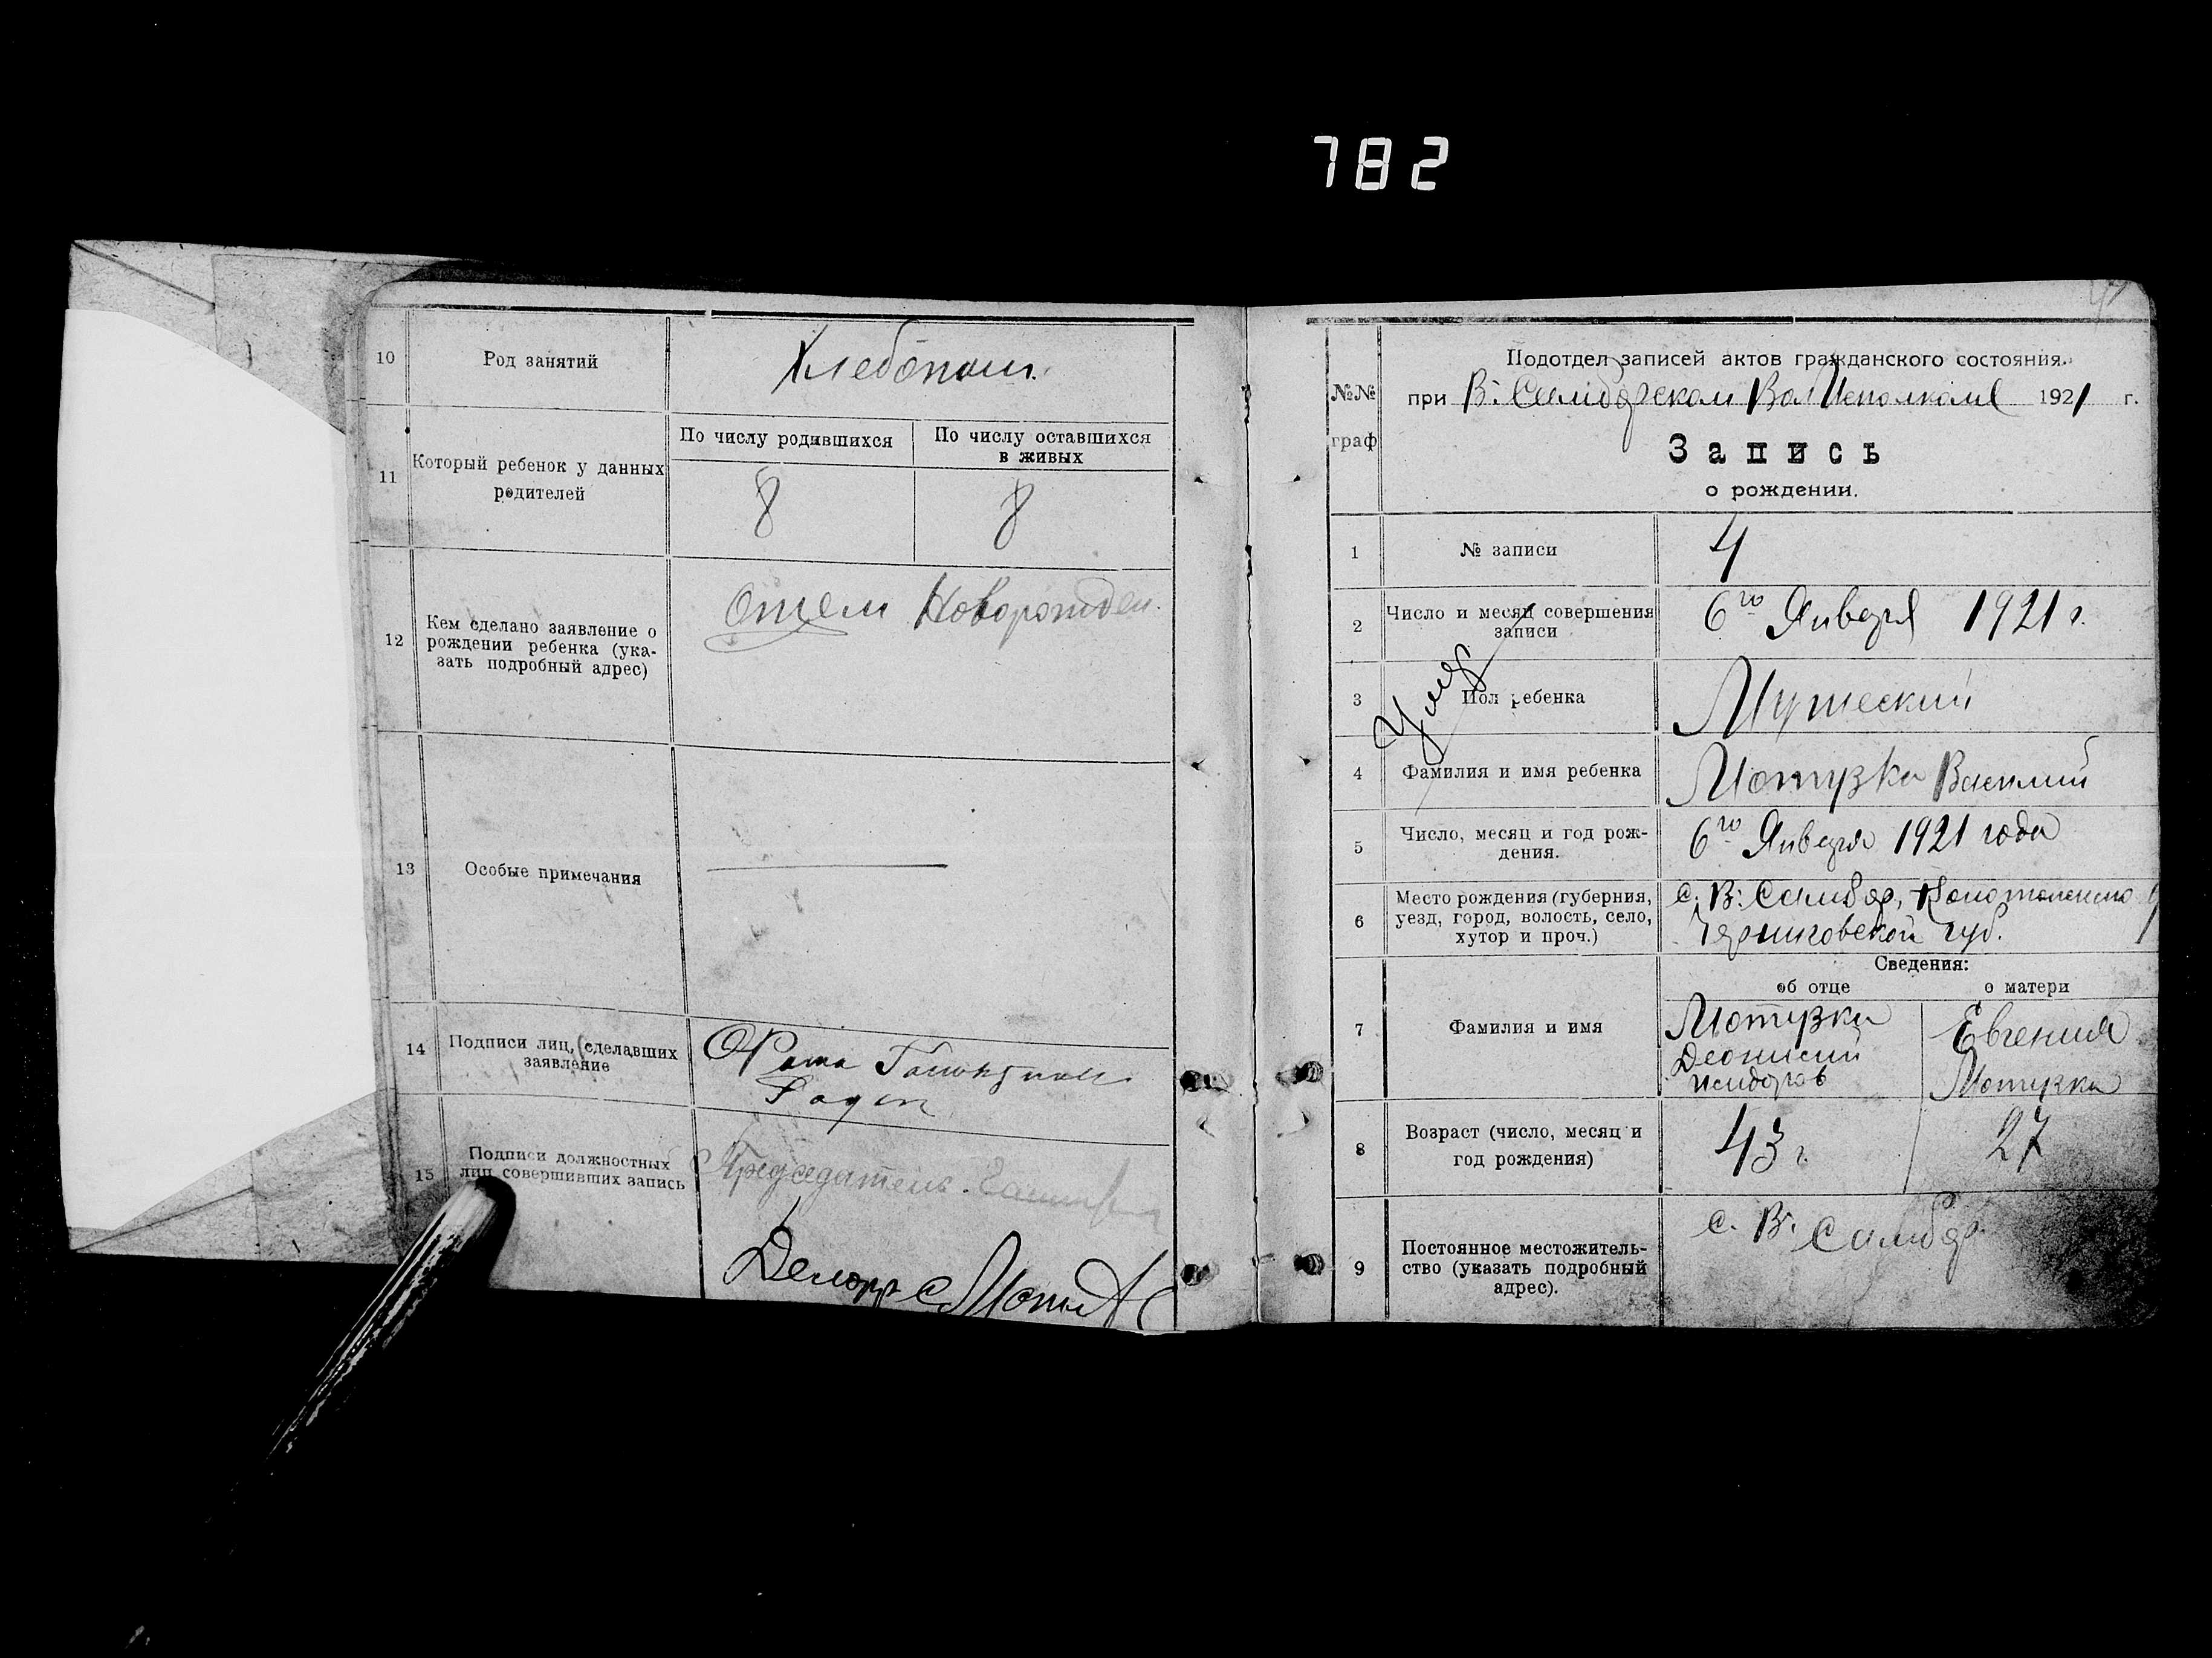 782
10 Род занятий Хлебопаш.
11 Который ребенок у данных родителей
По числу родившихся По числу оставшихся в живых
8 8
12 Кем сделано заявление о
рождении ребенка (ука-
зать подробный адрес)
Отцем Новорожден.
13 Особые примечания
14 Подписи лиц, сделавших
заявление
15 Подписи должностных
лиц совершивших запись
Председатель
Делопр
№№
граф
Подотдел записей актов гражданского состояния
при В. Самборском Вол Исполкоме 1921 г.
Запись
о рождении.
1 № записи 4
2 Число и месяц совершения
записи
6го Января 1921 г.
Умер
3 Пол ребенка Мужеский
4 Фамилия и имя ребенка Мотузка Василий
5 Число, месяц и год рож-
дения.
6го Января 1921 года
6 Место рождения (губерния,
уезд, город, волость, село,
хутор и проч.)
с. В. Самбор,
Черниговской губ.
Сведения:
об отце о матери
7 Фамилия и имя
Мотузка
Деонисий
Исидоров
Евгения
Мотузка
8 Возраст (число, месяц и
год рождения)
43 г. 27
9 Постоянное местожитель-
ство (указать подробный
адрес).
с. В. Самбор